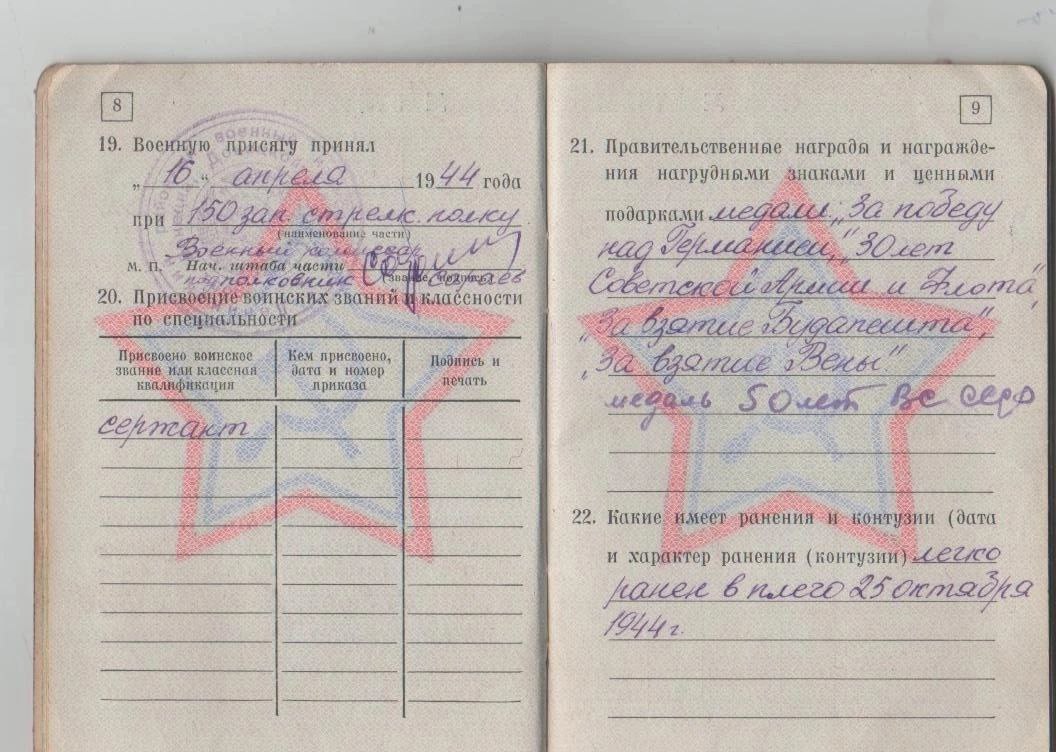 8
19. Военную присягу принял
„ 16 “ апреля 1944 года
при 150 зап. стрелк. полку
(наименование части)
Военный комиссар
М. П. Нач. штаба части
(звание, подпись)
подполковник
20. Присвоение воинских званий и классности
по специальности
Присвоено воинское
звание или классная
квалификация
Кем присвоено,
дата и номер
приказа
Подпись и
печать
сержант
9
21. Правительственные награды и награжде-
ния нагрудными знаками и ценными
подарками медали: „За победу
над Германией", „30 лет
Советской Армии и Флота",
„За взятие Будапешта",
„За взятие Вены"
медаль 50 лет ВС СССР
22. Какие имеет ранения и контузии (дата
и характер ранения (контузии) легко
ранен в плечо 25 октября
1944 г.